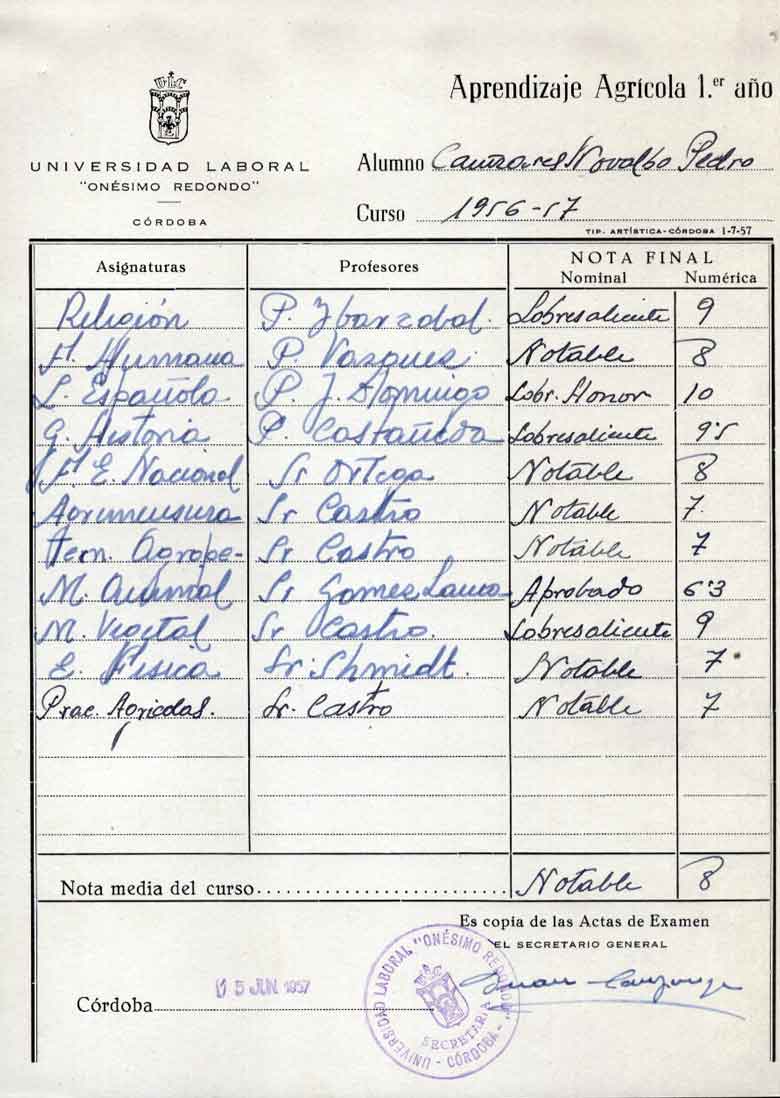 ULC
Aprendizaje Agrícola 1.er año
UNIVERSIDAD LABORAL
"ONÉSIMO REDONDO"
CÓRDOBA
Alumno Cañizares Novalbo Pedro
Curso 1956-57
TIP. ARTÍSTICA-CÓRDOBA 1-7-57
Asignaturas Profesores NOTA FINAL
Nominal Numérica
Religión P. Ybarzabal. Sobresaliente 9
F. Humana P. Vazquez Notable 8
L. Española P. J. Domingo Sobr. Honor 10
G. Historia P. Castañeda Sobresaliente 9'5
F. E. Nacional Sr Ortega Notable 8
Agrimensura Sr Castro Notable 7.
Tecn. Agrope- Sr Castro Notable 7
M. Animal Sr Gomez Aprobado 6'3
M. Vegetal Sr Castro. Sobresaliente 9
E. Fisica Sr. Shmidt. Notable 7
Prac. Agricolas. Sr. Castro Notable 7
Nota media del curso Notable 8
Es copia de las Actas de Examen
EL SECRETARIO GENERAL
Córdoba 05 JUN 1957
UNIVERSIDAD LABORAL "ONÉSIMO REDONDO" - CÓRDOBA -
SECRETARÍA